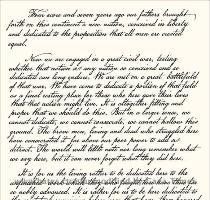 Four score and seven years ago our fathers brought
forth on this continent a new nation, conceived in liberty
and dedicated to the proposition that all men are created
equal.
Now we are engaged in a great civil war, testing
whether that nation or any nation so conceived and so
dedicated can long endure. We are met on a great battlefield
of that war. We have come to dedicate a portion of that field
as a final resting place for those who here gave their lives
that that nation might live. It is altogether fitting and
proper that we should do this. But in a larger sense, we
cannot dedicate, we cannot consecrate, we cannot hallow this
ground. The brave men, living and dead who struggled here
have consecrated it far above our poor power to add or
detract. The world will little note nor long remember what
we say here, but it can never forget what they did here.
It is for us the living rather to be dedicated here to the
unfinished work which they who fought here have thus far
so nobly advanced. It is rather for us to be here dedicated to